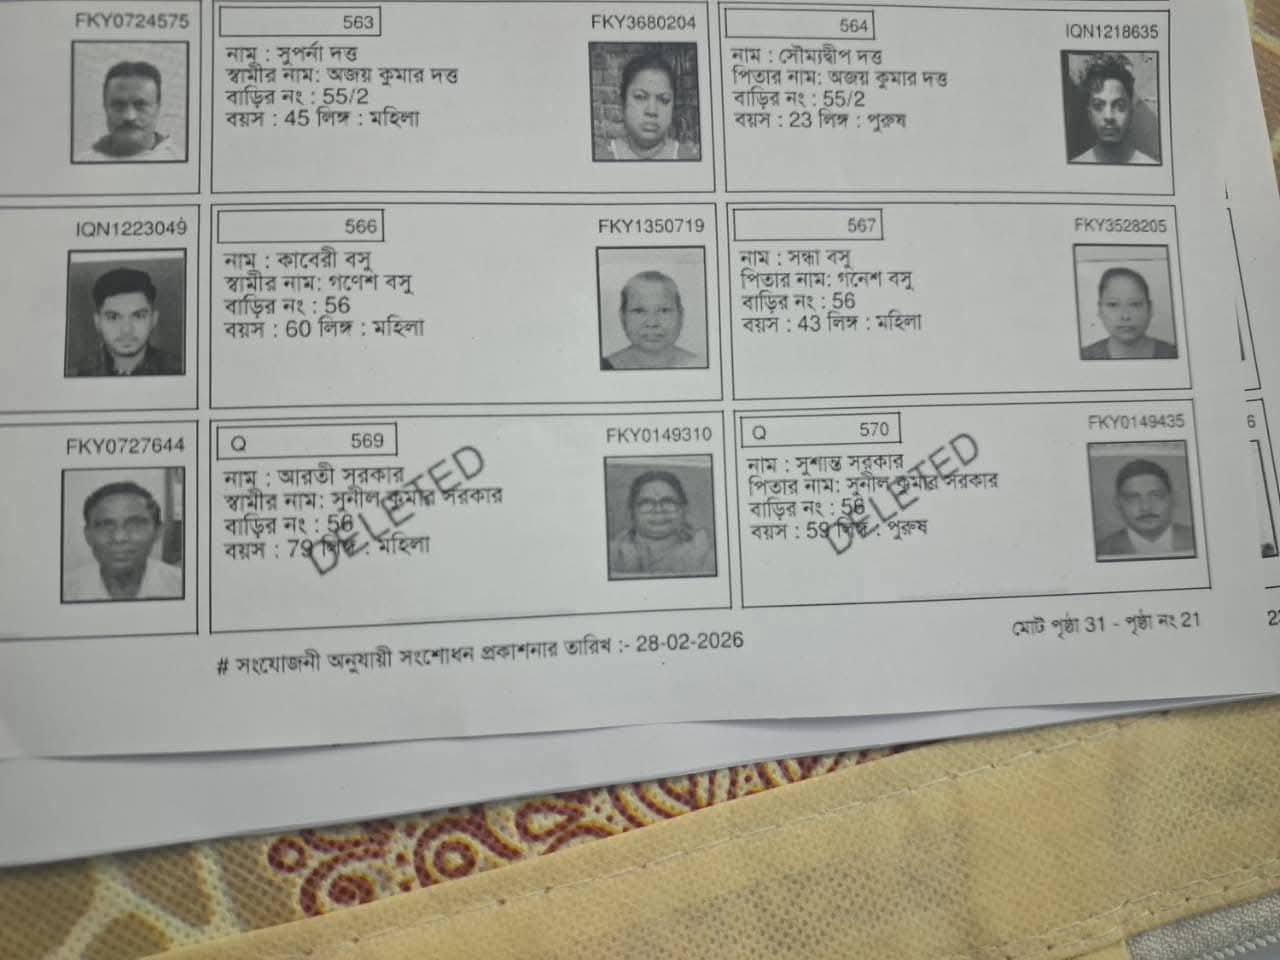 FKY0724575
563
FKY3680204
নাম : সুপর্না দত্ত
স্বামীর নাম: অজয় কুমার দত্ত
বাড়ির নং : 55/2
বয়স : 45 লিঙ্গ : মহিলা
564
IQN1218635
নাম : সৌম্যদ্বীপ দত্ত
পিতার নাম: অজয় কুমার দত্ত
বাড়ির নং : 55/2
বয়স : 23 লিঙ্গ : পুরুষ
IQN1223049
566
FKY1350719
নাম : কাবেরী বসু
স্বামীর নাম: গণেশ বসু
বাড়ির নং : 56
বয়স : 60 লিঙ্গ : মহিলা
567
FKY3528205
নাম : সন্ধা বসু
পিতার নাম: গনেশ বসু
বাড়ির নং : 56
বয়স : 43 লিঙ্গ : মহিলা
FKY0727644
Q 569
FKY0149310
নাম : আরতী সরকার
স্বামীর নাম: সুনীল কুমার সরকার
বাড়ির নং : 56
বয়স : 79 লিঙ্গ : মহিলা
DELETED
Q 570
FKY0149435
নাম : সুশান্ত সরকার
পিতার নাম: সুনীল কুমার সরকার
বাড়ির নং : 56
বয়স : 59 লিঙ্গ : পুরুষ
DELETED
6
# সংযোজনী অনুযায়ী সংশোধন প্রকাশনার তারিখ :- 28-02-2026
মোট পৃষ্ঠা 31 - পৃষ্ঠা নং 21